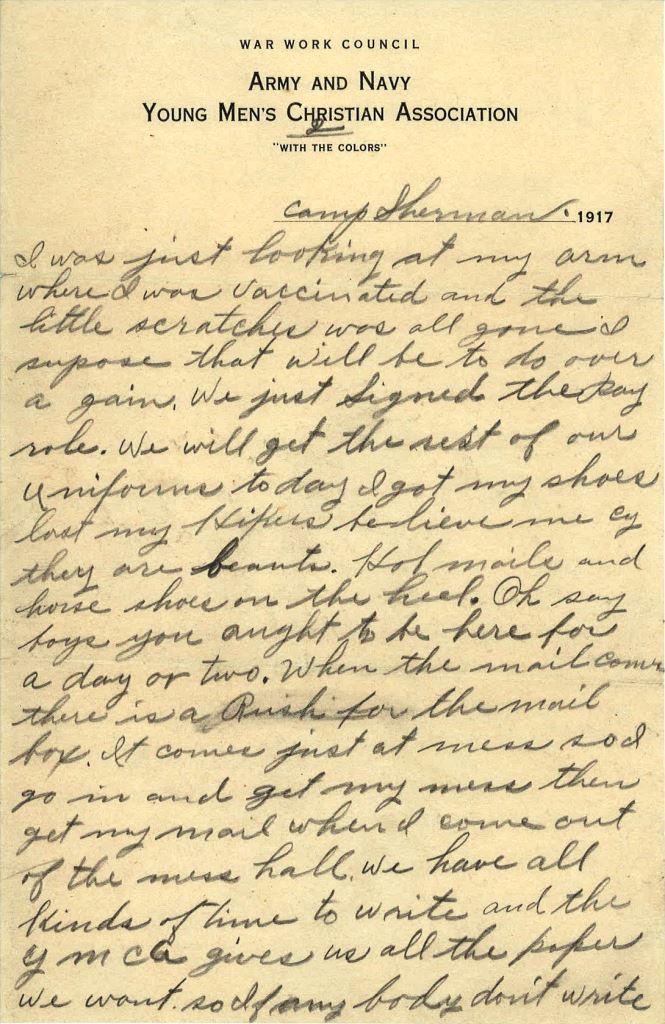 WAR WORK COUNCIL
ARMY AND NAVY
YOUNG MEN'S CHRISTIAN ASSOCIATION
2
"WITH THE COLORS"
Camp Sherman. 1917
I was just looking at my arm
where I was vaccinated and the
little scratches was all gone I
supose that will be to do over
a gain. We just signed the pay
role. We will get the rest of our
uniforms to day I got my shoes
last my Hikers believe me cy
they are beauts. Hob nails and
horse shoes on the heel. Oh say
boys you aught to be here for
a day or two. When the mail comes
there is a Rush for the mail
box. It comes just at mess so I
go in and get my mess then
get my mail when I come out
of the mess hall. we have all
kinds of time to write and the
y m ca gives us all the paper
we want. so If any body don't write